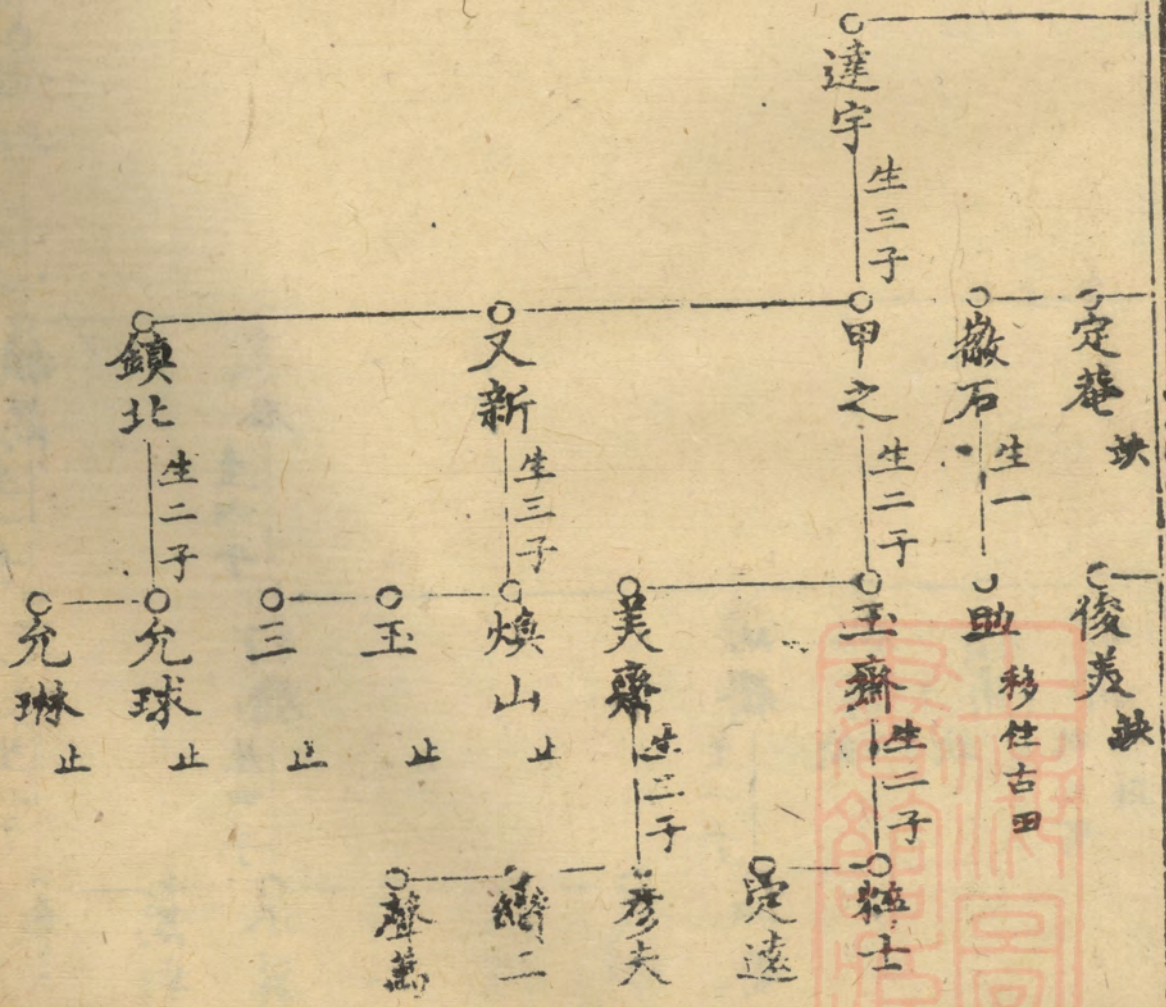 達宇
生三子
定菴
缺
徹石
生一
甲之
生二子
又新
生三子
鎮北
生二子
俊美
缺
助
移住古田
玉齋
生二子
美齋
生三子
煥山
止
玉
止
三
止
允球
止
允琳
止
士
遠
彥夫
二
聲萬